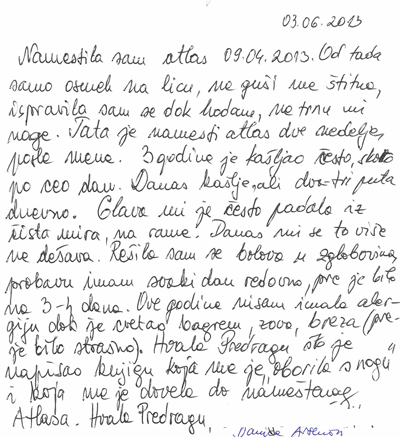 03.06.2013
Namestila sam atlas 09.04.2013. Od tada
samo osmeh na licu, ne guši me štitna,
ispravila sam se dok hodam, ne trnu mi
noge. Tata je namesti atlas dve nedelje
posle mene. 3 godine je kašljao često, skoro
po ceo dan. Danas kašlje, ali dva-tri puta
dnevno. Glava mi je često padala iz
čista mira, na rame. Danas mi se to više
ne dešava. Rešila sam se bolova u zglobovima,
probavu imam svaki dan redovno, pre je bilo
na 3-4 dana. Ove godine nisam imala aler-
giju dok je cvetao bagrem, zova, breza (pre
je bilo strašno). Hvala Predragu što je
napisao knjigu koja me je „oborila s nogu"
i koja me je dovela do nameštenog
Atlasa. Hvala Predragu,